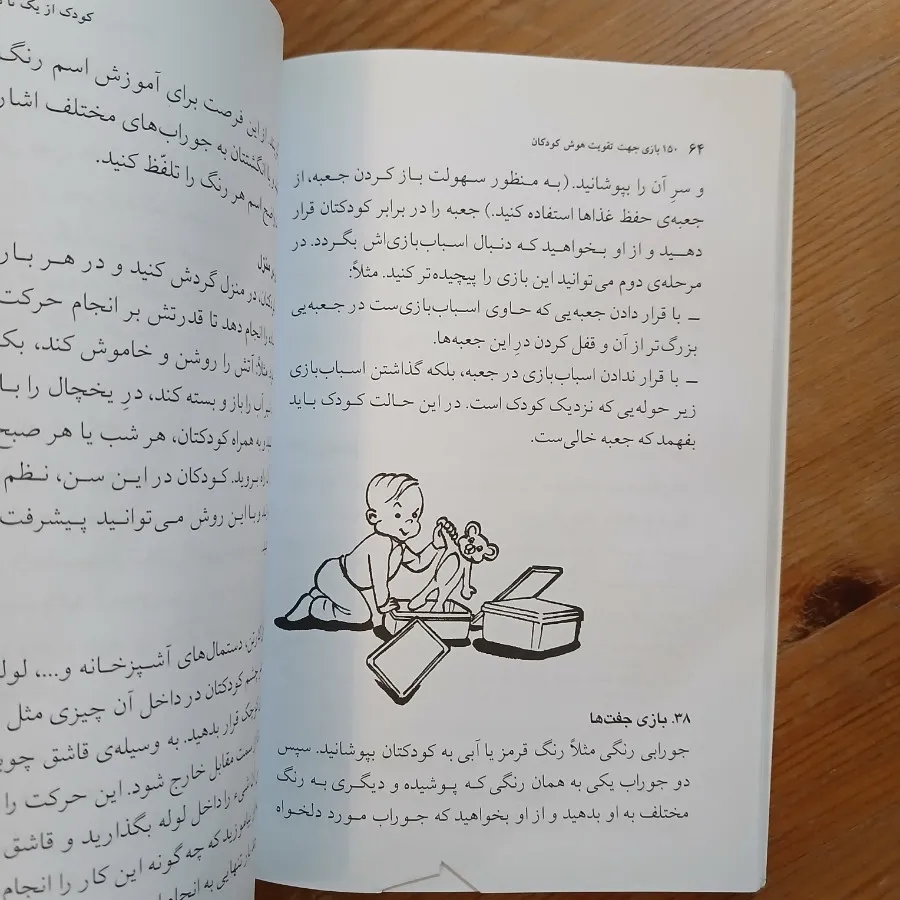 ۶۴ ۱۵۰ بازی جهت تقویت هوش کودکان
و سرِ آن را بپوشانید. (به منظور سهولت باز کردن جعبه، از
جعبه‌ی حفظ غذاها استفاده کنید.) جعبه را در برابر کودکتان قرار
دهید و از او بخواهید که دنبال اسباب‌بازی‌اش بگردد. در
مرحله‌ی دوم می‌توانید این بازی را پیچیده‌تر کنید. مثلاً:
– با قرار دادن جعبه‌یی که حاوی اسباب‌بازی‌ست در جعبه‌یی
بزرگ‌تر از آن و قفل کردن درِ این جعبه‌ها.
– با قرار ندادن اسباب‌بازی در جعبه، بلکه گذاشتن اسباب‌بازی
زیر حوله‌یی که نزدیک کودک است. در این حالت کودک باید
بفهمد که جعبه خالی‌ست.
۳۸. بازی جفت‌ها
جورابی رنگی مثلاً رنگ قرمز یا آبی به کودکتان بپوشانید. سپس
دو جوراب یکی به همان رنگی که پوشیده و دیگری به رنگ
مختلف به او بدهید و از او بخواهید که جوراب مورد دلخواه
کودک از یک تا
از این فرصت برای آموزش اسم رنگ
با انگشتتان به جوراب‌های مختلف اشار
اسم هر رنگ را تلفّظ کنید.
منزل
در منزل گردش کنید و در هر بار
را انجام دهد تا قدرتش بر انجام حرکت
مثلاً: آتش را روشن و خاموش کند، یک
آب را باز و بسته کند، درِ یخچال را با
و به همراه کودکتان، هر شب یا هر صبح
بروید. کودکان در این سن، نظم
و با این روش می‌توانید پیشرفت
دستمال‌های آشپزخانه و...، لوله
چشم کودکتان در داخل آن چیزی مثل
قرار بدهید. به وسیله‌ی قاشق چوبی
سمت مقابل خارج شود. این حرکت را
را داخل لوله بگذارید و قاشق
که چه‌گونه این کار را انجام
تنهایی به انجام